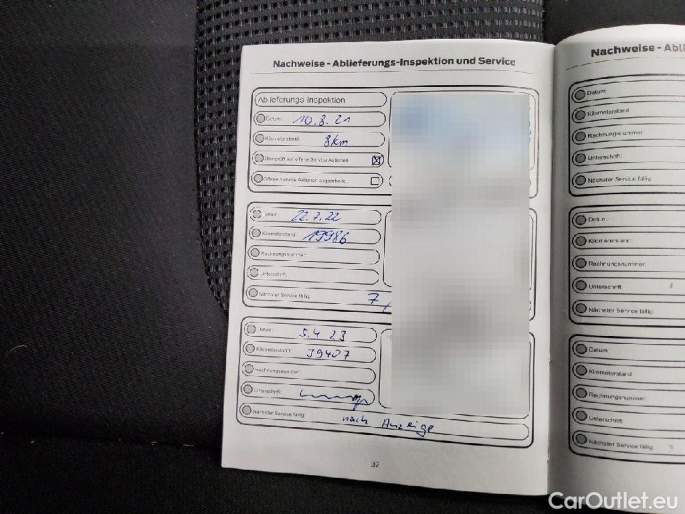 Nachweise - Ablieferungs-Inspektion und Service
Ablieferungs-Inspektion
Datum: 10.8.21
Kilometerstand: 8km
Datum: 22.7.22
Kilometerstand: 19986
Rechnungsnummer:
Unterschrift:
Nächster Service fällig: 7/
Datum: 5.4 23
Kilometerstand: 39407
Rechnungsnummer:
Unterschrift:
Nächster Service fällig: nach Anzeige
37
Nachweise - Abli
Datum
Kilometerstand
Rechnungsnummer
Unterschrift
Nächster Service fällig
Datum
Kilometerstand
Rechnungsnummer
Unterschrift
Nächster Service fällig
Datum
Kilometerstand
Rechnungsnummer
Unterschrift
Nächster Service fällig
CarOutlet.eu